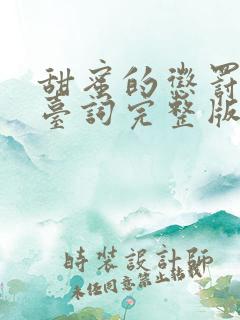 甜蜜的懲罰
臺詞完整版
時裝設計師
未经同意禁止粘贴